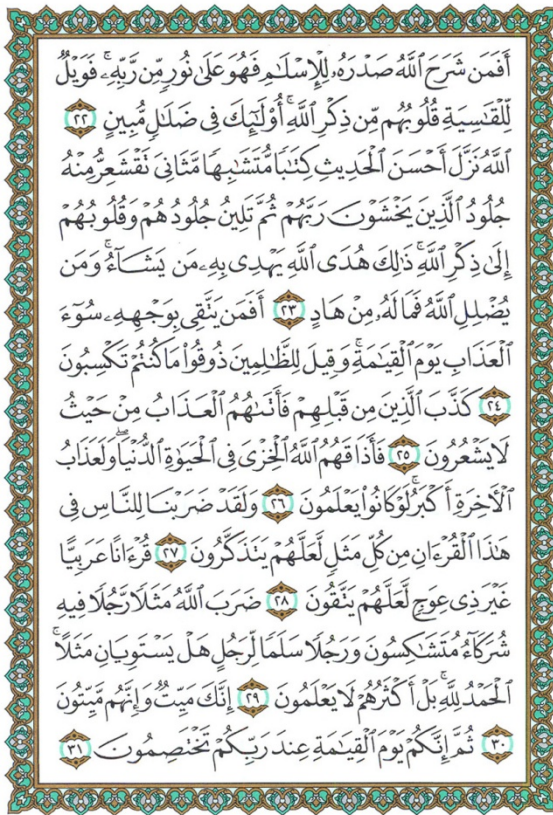 أَفَمَن شَرَحَ ٱللَّهُ صَدْرَهُۥ لِلْإِسْلَٰمِ فَهُوَ عَلَىٰ نُورٍ مِّن رَّبِّهِۦۚ فَوَيْلٌ
لِّلْقَٰسِيَةِ قُلُوبُهُم مِّن ذِكْرِ ٱللَّهِۚ أُو۟لَٰٓئِكَ فِى ضَلَٰلٍ مُّبِينٍ ٢٢
ٱللَّهُ نَزَّلَ أَحْسَنَ ٱلْحَدِيثِ كِتَٰبًا مُّتَشَٰبِهًا مَّثَانِىَ تَقْشَعِرُّ مِنْهُ
جُلُودُ ٱلَّذِينَ يَخْشَوْنَ رَبَّهُمْ ثُمَّ تَلِينُ جُلُودُهُمْ وَقُلُوبُهُمْ
إِلَىٰ ذِكْرِ ٱللَّهِۚ ذَٰلِكَ هُدَى ٱللَّهِ يَهْدِى بِهِۦ مَن يَشَآءُۚ وَمَن
يُضْلِلِ ٱللَّهُ فَمَا لَهُۥ مِنْ هَادٍ ٢٣ أَفَمَن يَتَّقِى بِوَجْهِهِۦ سُوٓءَ
ٱلْعَذَابِ يَوْمَ ٱلْقِيَٰمَةِۚ وَقِيلَ لِلظَّٰلِمِينَ ذُوقُوا۟ مَا كُنتُمْ تَكْسِبُونَ
٢٤ كَذَّبَ ٱلَّذِينَ مِن قَبْلِهِمْ فَأَتَىٰهُمُ ٱلْعَذَابُ مِنْ حَيْثُ
لَا يَشْعُرُونَ ٢٥ فَأَذَاقَهُمُ ٱللَّهُ ٱلْخِزْىَ فِى ٱلْحَيَوٰةِ ٱلدُّنْيَاۖ وَلَعَذَابُ
ٱلْءَاخِرَةِ أَكْبَرُۚ لَوْ كَانُوا۟ يَعْلَمُونَ ٢٦ وَلَقَدْ ضَرَبْنَا لِلنَّاسِ فِى
هَٰذَا ٱلْقُرْءَانِ مِن كُلِّ مَثَلٍ لَّعَلَّهُمْ يَتَذَكَّرُونَ ٢٧ قُرْءَانًا عَرَبِيًّا
غَيْرَ ذِى عِوَجٍ لَّعَلَّهُمْ يَتَّقُونَ ٢٨ ضَرَبَ ٱللَّهُ مَثَلًا رَّجُلًا فِيهِ
شُرَكَآءُ مُتَشَٰكِسُونَ وَرَجُلًا سَلَمًا لِّرَجُلٍ هَلْ يَسْتَوِيَانِ مَثَلًاۚ
ٱلْحَمْدُ لِلَّهِۚ بَلْ أَكْثَرُهُمْ لَا يَعْلَمُونَ ٢٩ إِنَّكَ مَيِّتٌ وَإِنَّهُم مَّيِّتُونَ
٣٠ ثُمَّ إِنَّكُمْ يَوْمَ ٱلْقِيَٰمَةِ عِندَ رَبِّكُمْ تَخْتَصِمُونَ ٣١